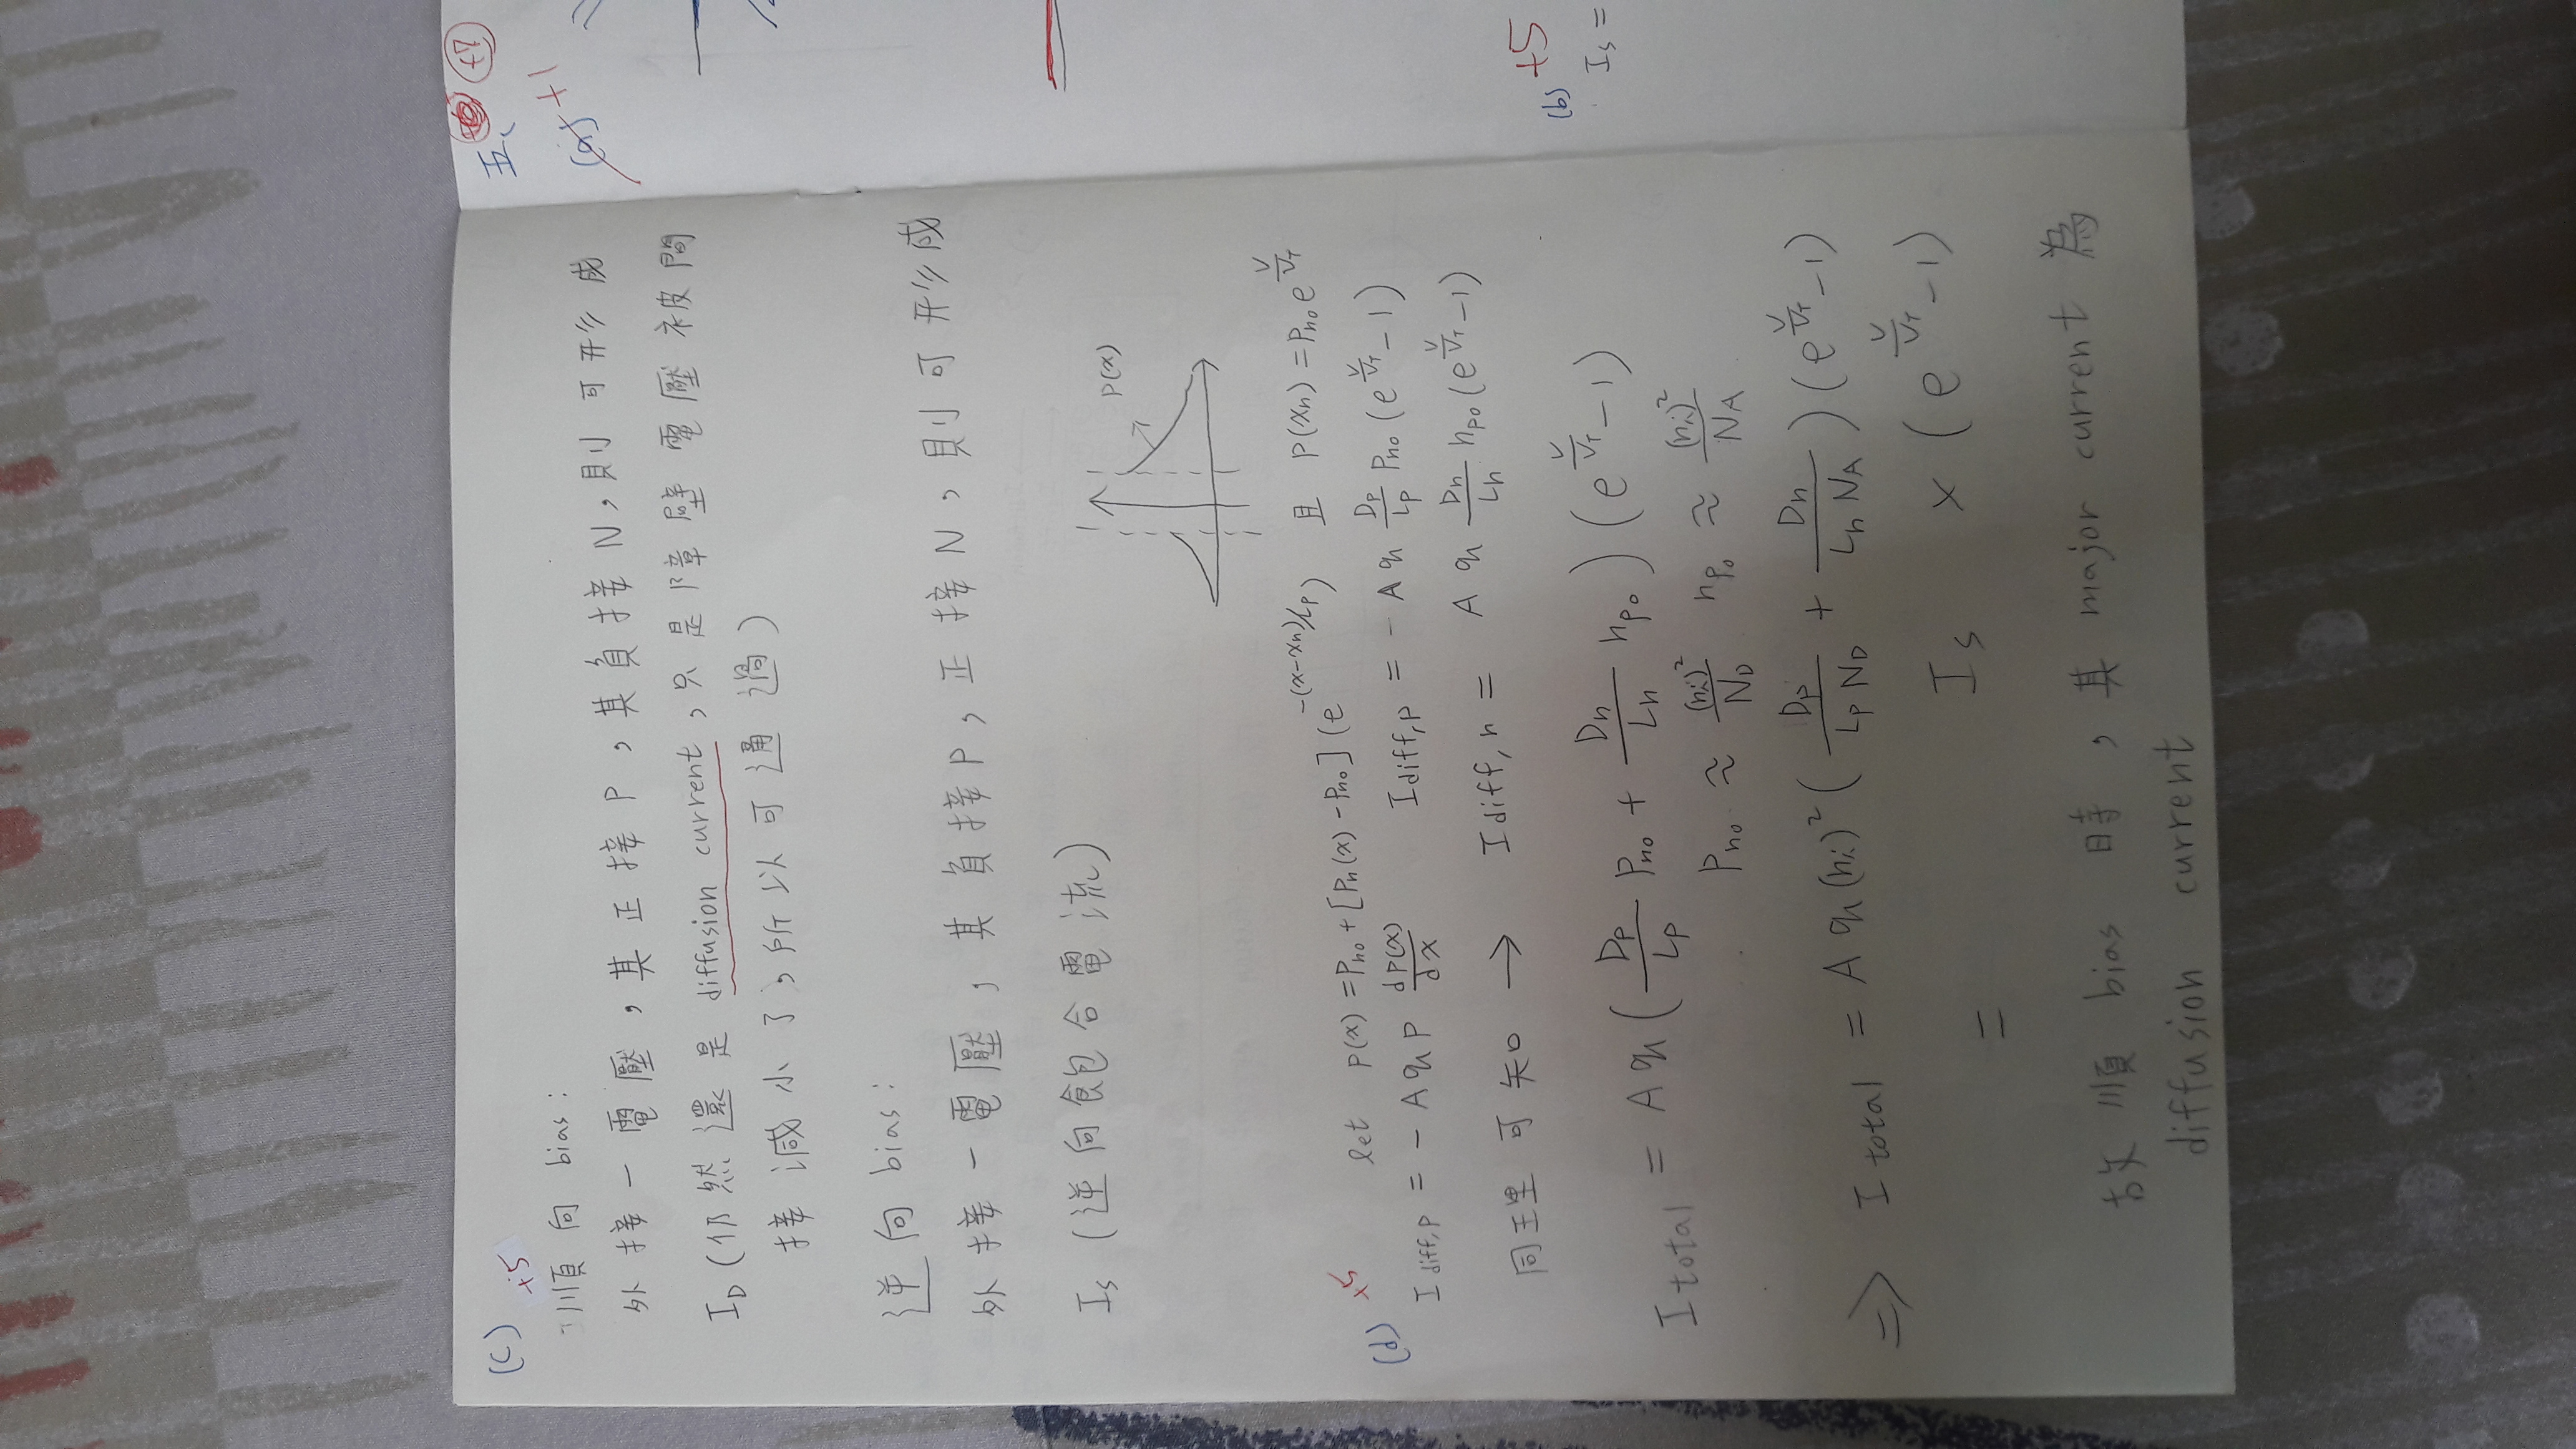 (c)
+5
順向 bias:
外接一電壓，其正接P，其負接N，則可形成
I_D (仍然還是 diffusion current，只是障壁電壓被間
接減小了，所以可通過)
逆向 bias:
外接一電壓，其負接P，正接N，則可形成
I_s (逆向飽合電流)
P(x)
(d) +5
let p(x) = P_no + [P_n(x) - P_no] (e^{-(x-x_n)/L_p}) 且 P(x_n) = P_no e^{V/V_T}
I_diff,p = - A q P dP(x)/dx    I_diff,p = - A q D_p/L_p P_no (e^{V/V_T} - 1)
同理可知 → I_diff,n = A q D_n/L_n n_po (e^{V/V_T} - 1)
I_total = A q ( D_p/L_p P_no + D_n/L_n n_po ) (e^{V/V_T} - 1)
P_no ≈ (n_i)²/N_D   n_po ≈ (n_i)²/N_A
⇒ I_total = A q (n_i)² ( D_p/(L_p N_D) + D_n/(L_n N_A) ) (e^{V/V_T} - 1)
= I_s × (e^{V/V_T} - 1)
故順 bias 時，其 major current 為
diffusion current
五、 +7
(a) +1
(b) +5
I_s =